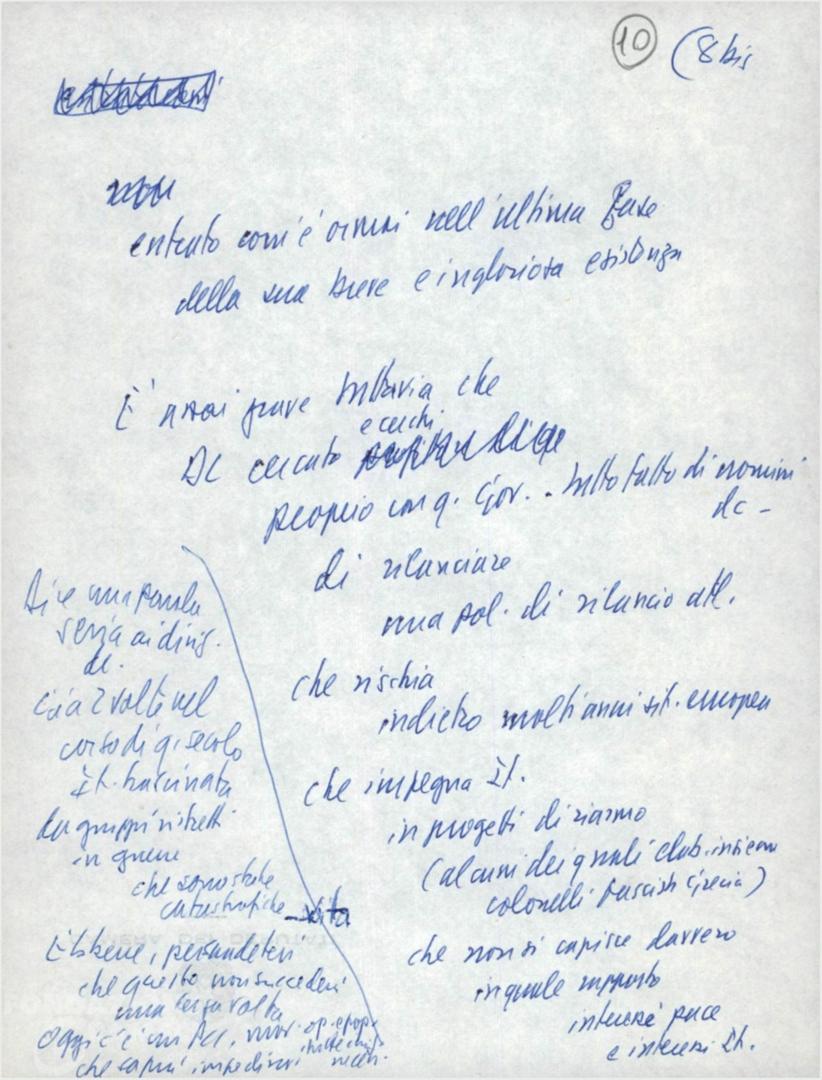 10 (8 bis
non
entrato com'è ormai nell'ultima fase
della sua breve e ingloriosa esistenza
È assai grave tuttavia che
e cerchi
DC cercato
proprio con q. Gov. . tutto fatto di uomini
dc -
di rilanciare
una pol. di rilancio atl.
che rischia
indietro molti anni sit. europea
che impegna It.
in progetti di riarmo
(alcuni dei quali elab. insieme
colonelli fascisti Grecia)
che non si capisce davvero
in quale rapporto
interessi pace
e interessi It.
Dire una parola
seria ai dirig.
dc.
Già 2 volte nel
corso di q. secolo
It. trascinata
da gruppi ristretti
in guerre
che sono state
catastrofiche
È bene, persuadetevi
che questo non succederà
una terza volta
Oggi c'è un PCI, mov. op. e pop.
che saprà impedirvi